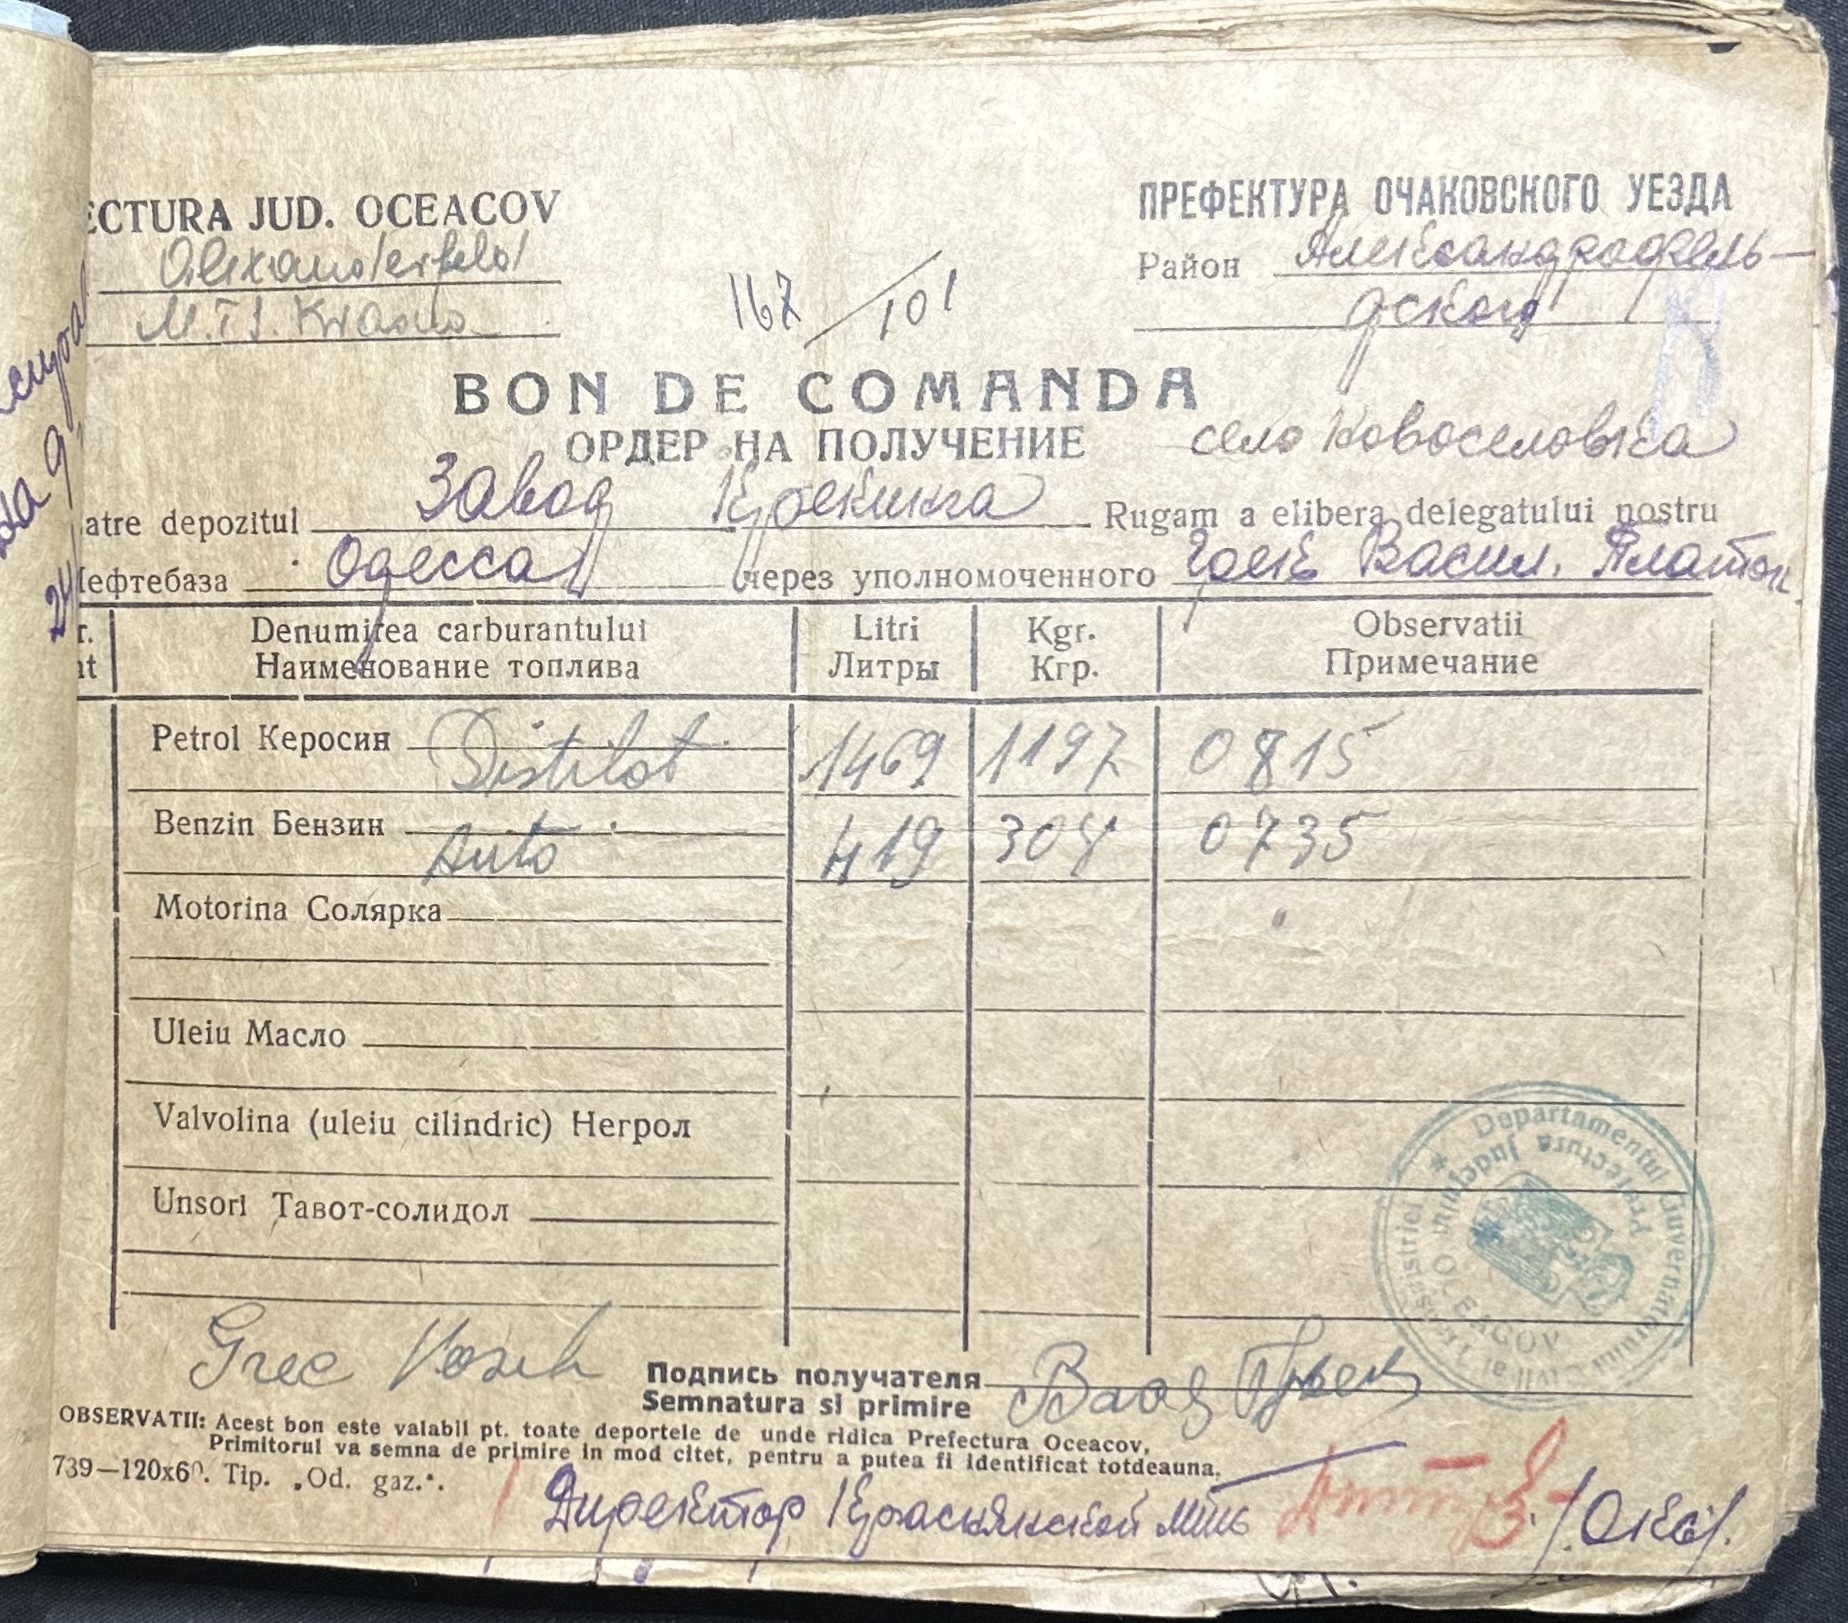 ECTURA JUD. OCEACOV
ПРЕФЕКТУРА ОЧАКОВСКОГО УЕЗДА
Alexanderfeld
Район Александрофель-
M.T.S. Krasna
167/101
дского
BON DE COMANDA
ОРДЕР НА ПОЛУЧЕНИЕ
село Новоселовка
atre depozitul Завод Крекинга Rugam a elibera delegatului nostru
Нефтебаза Одесса через уполномоченного Грек Васил. Платон
Denumirea carburantului Litri Kgr. Observatii
Наименование топлива Литры Кгр. Примечание
Petrol Керосин Distilat 1469 1197 0815
Benzin Бензин Auto 419 308 0735
Motorina Солярка
Uleiu Масло
Valvolina (uleiu cilindric) Негрол
Unsori Тавот-солидол
Departamentul Guvernatorului Civil al Transnistriei
Prefectura Judeţului
OCEACOV
Grec Vasili
Подпись получателя
Semnatura si primire
OBSERVATII: Acest bon este valabil pt. toate deportele de unde ridica Prefectura Oceacov,
Primitorul va semna de primire in mod citet, pentru a putea fi identificat totdeauna.
739—120x60. Tip. „Od. gaz.“.
Директор Краснянской мтс